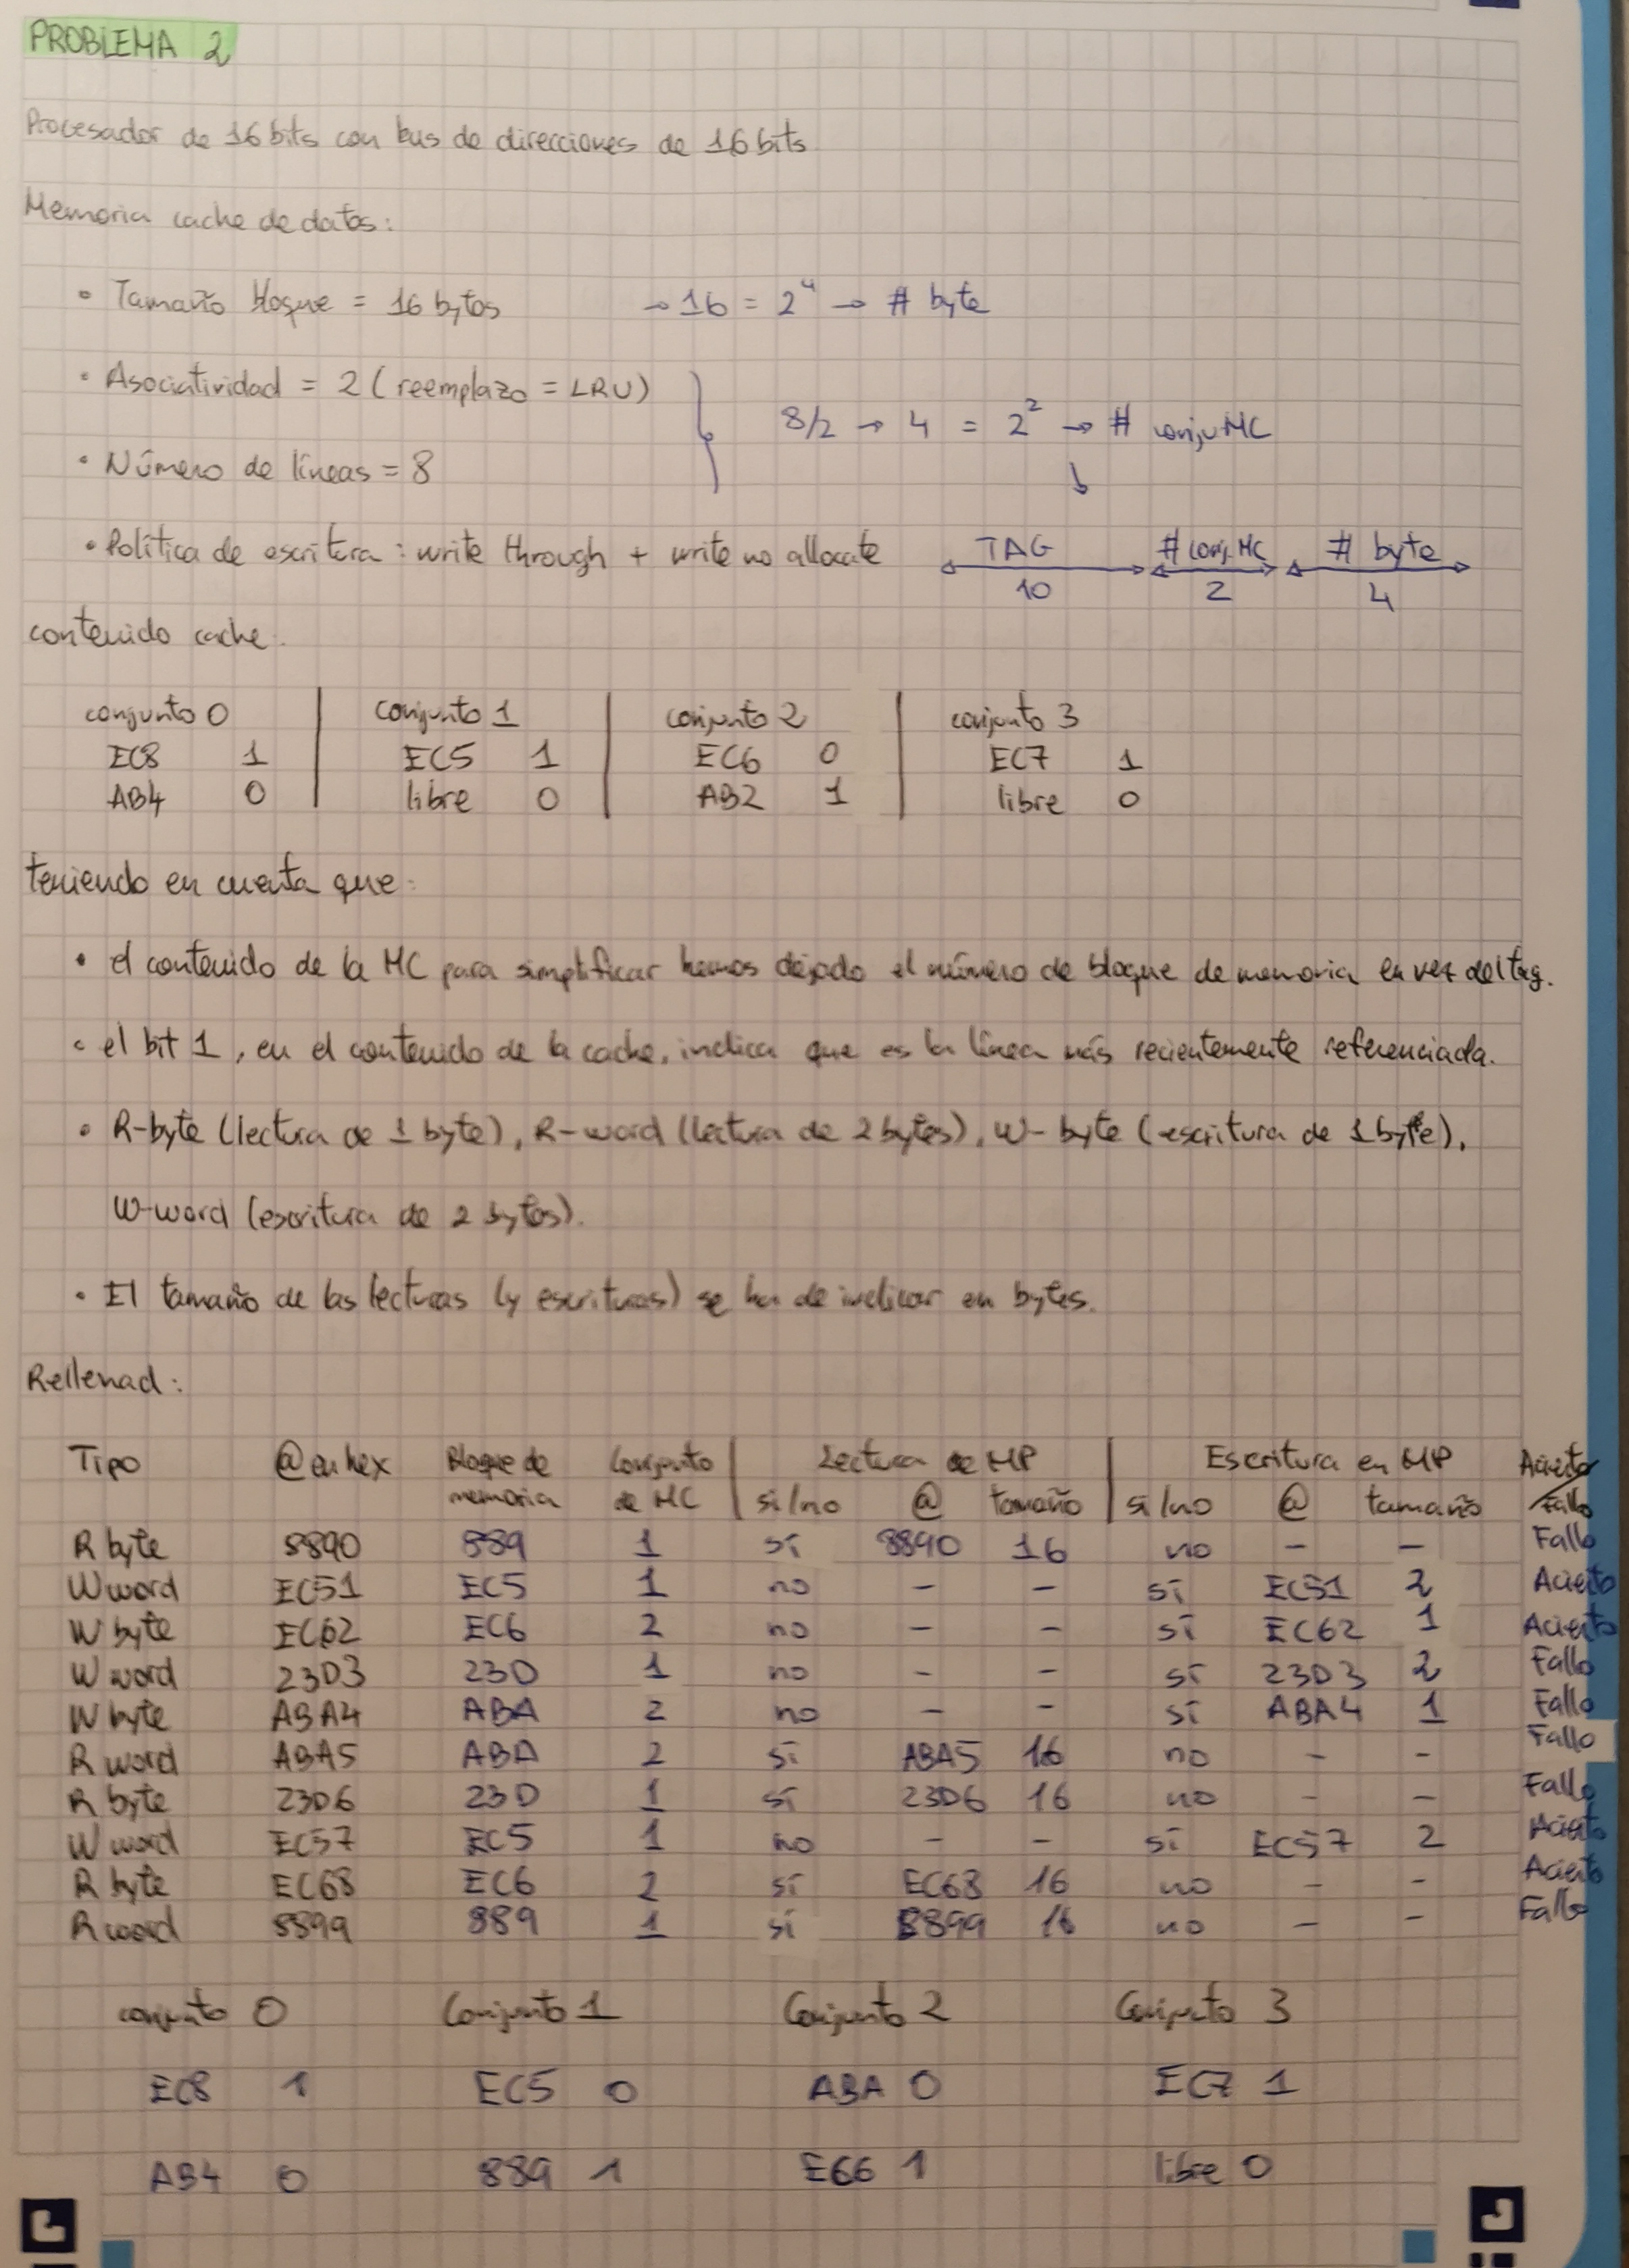 PROBLEMA 2
Procesador de 16 bits con bus de direcciones de 16 bits
Memoria cache de datos:
• Tamaño bloque = 16 bytes → 16 = 2⁴ → # byte
• Asociatividad = 2 (reemplazo = LRU)
8/2 → 4 = 2² → # conju MC
• Número de líneas = 8
• Política de escritura: write through + write no allocate TAG #conj. MC # byte
10 2 4
contenido cache:
conjunto 0 conjunto 1 conjunto 2 conjunto 3
EC8 1 EC5 1 EC6 0 EC7 1
AB4 0 libre 0 AB2 1 libre 0
teniendo en cuenta que:
• el contenido de la MC para simplificar hemos dejado el número de bloque de memoria en vez del tag.
• el bit 1, en el contenido de la cache, indica que es la línea más recientemente referenciada.
• R-byte (lectura de 1 byte), R-word (lectura de 2 bytes), W-byte (escritura de 1 byte),
W-word (escritura de 2 bytes).
• El tamaño de las lecturas (y escrituras) se ha de indicar en bytes.
Rellenad:
Tipo @ en hex Bloque de Conjunto Lectura de MP Escritura en MP Acierto/
memoria de MC si/no @ tamaño si/no @ tamaño Fallo
R byte 8890 889 1 sí 8890 16 no - - Fallo
W word EC51 EC5 1 no - - sí EC51 2 Acierto
W byte EC62 EC6 2 no - - sí EC62 1 Acierto
W word 23D3 23D 1 no - - sí 23D3 2 Fallo
W byte ABA4 ABA 2 no - - sí ABA4 1 Fallo
R word ABA5 ABA 2 sí ABA5 16 no - - Fallo
R byte 23D6 23D 1 sí 23D6 16 no - - Fallo
W word EC57 EC5 1 no - - sí EC57 2 Acierto
R byte EC68 EC6 2 sí EC68 16 no - - Acierto
R word 8899 889 1 sí 8899 16 no - - Fallo
conjunto 0 Conjunto 1 Conjunto 2 Conjunto 3
EC8 1 EC5 0 ABA 0 EC7 1
AB4 0 889 1 E66 1 libre 0